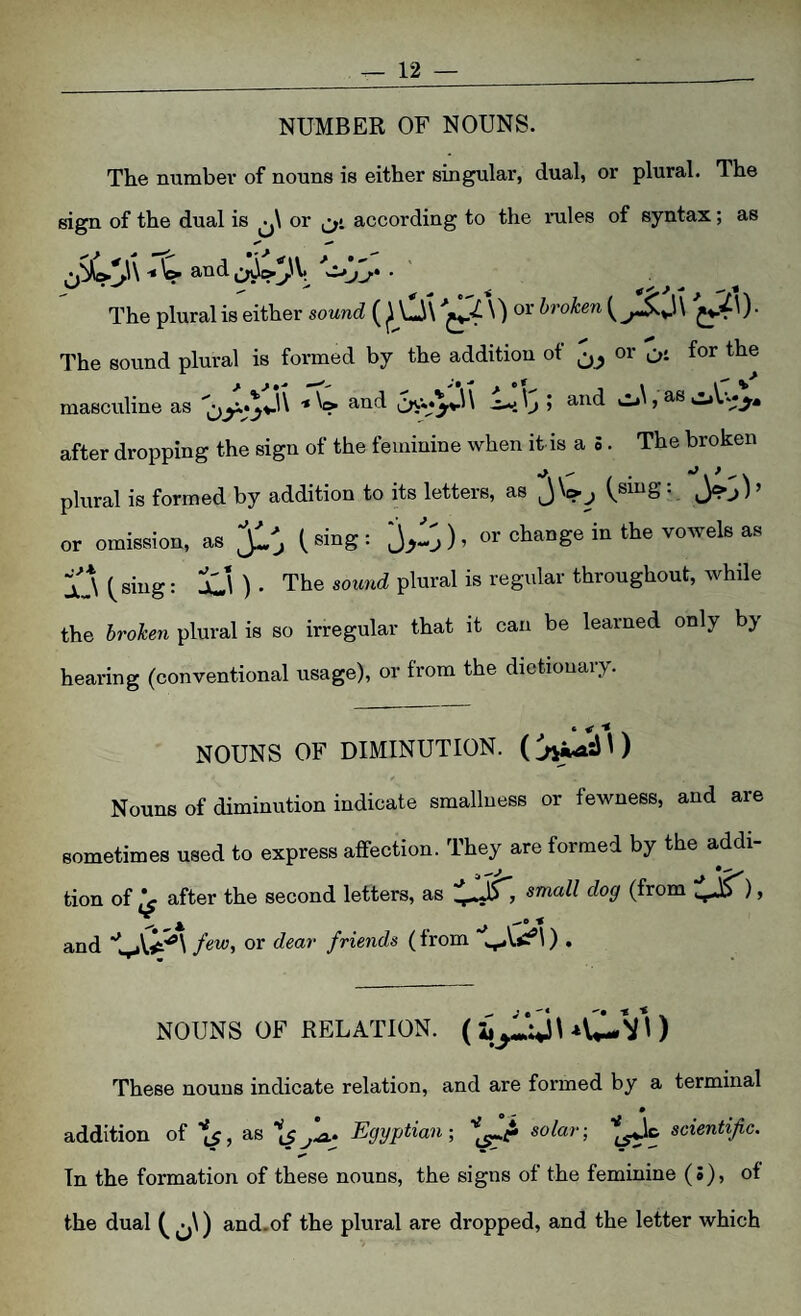 — 12 —
NUMBER OF NOUNS.
The number of nouns is either singular, dual, or plural. The
sign of the dual is ان or ين according to the rules of syntax; as
جاء الرجلان and مررت بالرجلين .
The plural is either sound (الجمع السالم) or broken (الجمع المكسر).
The sound plural is formed by the addition of ون or ين for the
masculine as جاء and ; and ات, as
after dropping the sign of the feminine when it is a ة. The broken
plural is formed by addition to its letters, as رِجَالٌ (sing: رَجُلٌ),
or omission, as رُسُلٌ (sing: رَسُولٌ), or change in the vowels as
أُسْدٌ (sing: أَسَدٌ). The sound plural is regular throughout, while
the broken plural is so irregular that it can be learned only by
hearing (conventional usage), or from the dictionary.
NOUNS OF DIMINUTION. (التصغير)
Nouns of diminution indicate smallness or fewness, and are
sometimes used to express affection. They are formed by the addi-
tion of يْ after the second letters, as كُلَيْبٌ, small dog (from كَلْبٌ),
and أُصَيْحَابٌ few, or dear friends (from أَصْحَابٌ).
NOUNS OF RELATION. (الأسماء المنسوبة)
These nouns indicate relation, and are formed by a terminal
addition of يٌّ, as مِصْرِيٌّ Egyptian; شَمْسِيٌّ solar; عِلْمِيٌّ scientific.
In the formation of these nouns, the signs of the feminine (ة), of
the dual (ان) and of the plural are dropped, and the letter which